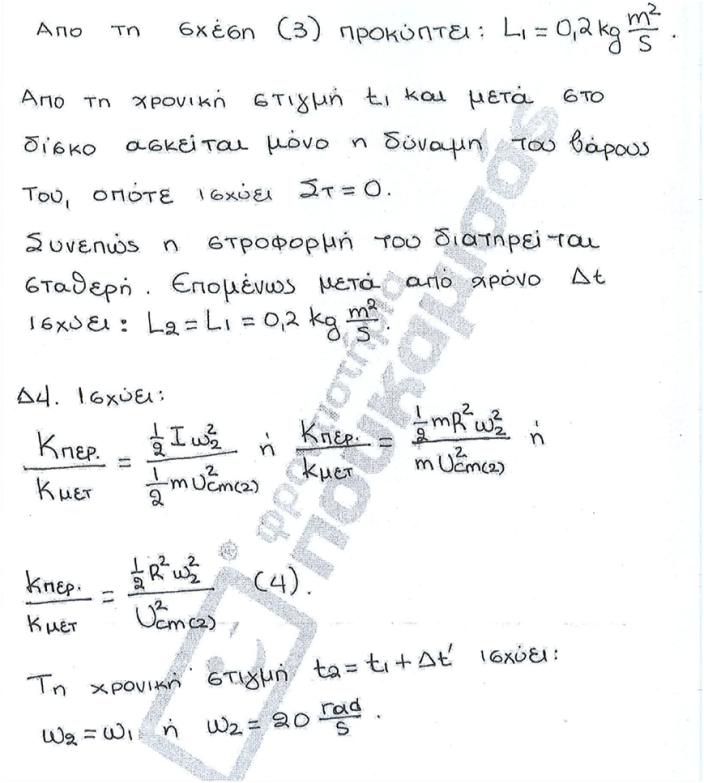 Απο τη σχέση (3) προκύπτει: L₁ = 0,2 kg m²/s .
Απο τη χρονική στιγμή t₁ και μετά στο
δίσκο ασκείται μόνο η δύναμη του βάρους
του, οπότε ισχύει Στ = 0.
Συνεπώς η στροφορμή του διατηρείται
σταθερή. Επομένως μετά από χρόνο Δt
ισχύει: L₂ = L₁ = 0,2 kg m²/s .
Δ4. Ισχύει:
Kπερ./Kμετ = (½ I ω₂²)/(½ m υ²cm(2)) ή Kπερ./Kμετ = (½ mR² ω₂²)/(m υ²cm(2)) ή
Kπερ./Kμετ = (½ R² ω₂²)/(υ²cm(2)) (4).
Τη χρονική στιγμή t₂ = t₁ + Δt' ισχύει:
ω₂ = ω₁ ή ω₂ = 20 rad/s .
φροντιστήρια
πουκαμισάς